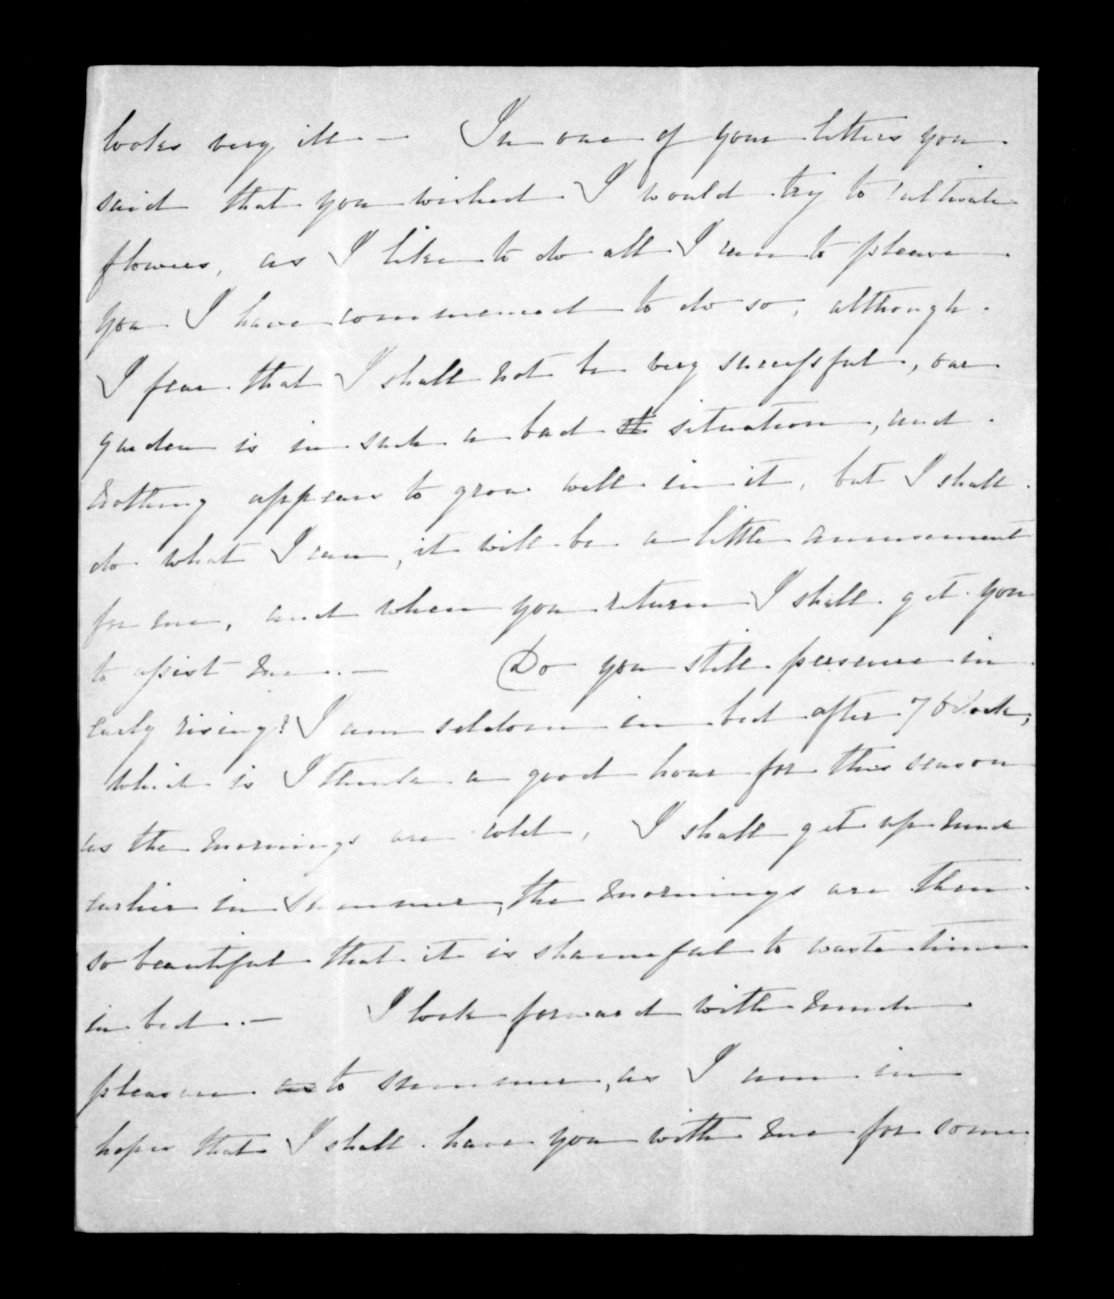 looks very ill — In one of your letters you
said that you wished I would try to cultivate
flowers, as I like to do all I can to please
you I have commenced to do so, although
I fear that I shall not be very successful, our
garden is in such a bad st situation, and
nothing appears to grow well in it, but I shall
do what I can, it will be a little amusement
for me, and when you return I shall get you
to assist me. — Do you still persevere in
early rising? I am seldom in bed after 7 OClock,
which is I think a good hour for this season
as the mornings are cold, I shall get up much
earlier in Summer, the mornings are then
so beautiful that it is shameful to waste time
in bed. — I look forward with much
pleasure as to summer, as I am in
hopes that I shall have you with me for some